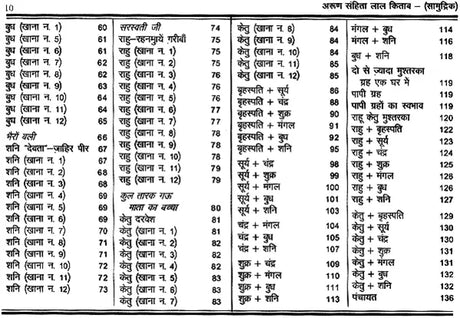 10
अरूण संहिता लाल किताब – (सामुद्रिक)
बुध (खाना न. 1) 60
बुध (खाना न. 5) 61
बुध (खाना न. 6) 61
बुध (खाना न. 7) 61
बुध (खाना न. 8) 62
बुध (खाना न. 9) 63
बुध (खाना न. 10) 64
बुध (खाना न. 11) 64
बुध (खाना न. 12) 65
भैरो बली 66
शनि 'देवता'–ज़ाहिर पीर 67
शनि (खाना न. 1) 67
शनि (खाना न. 2) 68
शनि (खाना न. 3) 68
शनि (खाना न. 4) 69
शनि (खाना न. 5) 69
शनि (खाना न. 6) 69
शनि (खाना न. 7) 70
शनि (खाना न. 8) 71
शनि (खाना न. 9) 71
शनि (खाना न. 10) 72
शनि (खाना न. 11) 72
शनि (खाना न. 12) 73
सरस्वती जी 74
राहु–रहनमुायें ग़रीबीं 75
राहु (खाना न. 1) 75
राहु (खाना न. 2) 75
राहु (खाना न. 3) 76
राहु (खाना न. 4) 76
राहु (खाना न. 5) 77
राहु (खाना न. 6) 77
राहु (खाना न. 7) 78
राहु (खाना न. 8) 78
राहु (खाना न. 9) 78
राहु (खाना न. 10) 78
राहु (खाना न. 11) 79
राहु (खाना न. 12) 79
कुल तारक गऊ
माता का बच्चा 80
केतु दरवेश 81
केतु (खाना न. 1) 81
केतु (खाना न. 2) 82
केतु (खाना न. 3) 82
केतु (खाना न. 4) 82
केतु (खाना न. 5) 83
केतु (खाना न. 6) 83
केतु (खाना न. 7) 83
केतु (खाना न. 8) 84
केतु (खाना न. 9) 84
केतु (खाना न. 10) 84
केतु (खाना न. 11) 85
केतु (खाना न. 12) 85
बृहस्पति + सूर्य 86
बृहस्पति + चंद्र 88
बृहस्पति + शुक्र 90
बृहस्पति + मंगल 91
बृहस्पति + बुध 92
बृहस्पति + शनि 95
सूर्य + चंद्र 98
सूर्य + शुक्र 99
सूर्य + मंगल 100
सूर्य + बुध 101
सूर्य + शनि 103
चंद्र + मंगल 104
चंद्र + बुध 105
चंद्र + शनि 107
शुक्र + चंद्र 109
शुक्र + मंगल 110
शुक्र + बुध 111
शुक्र + शनि 113
मंगल + बुध 114
मंगल + शनि 116
बुध + शनि 118
दो से ज़्यादा मुश्तरका
ग्रह एक घर में 119
पापी ग्रह 119
पापी ग्रहों का स्वभाव 119
राहू केतु मुश्तरका 120
राहु + बृहस्पति 122
राहु + सूर्य 123
राहु + चंद्र 124
राहु + शुक्र 125
राहु + मंगल 126
राहु + बुध 126
राहु + शनि 127
केतु + बृहस्पति 129
केतु + सूर्य 130
केतु + चंद्र 130
केतु + शुक्र 131
केतु + मंगल 131
केतु + बुध 132
केतु + शनि 132
पंचायत 136